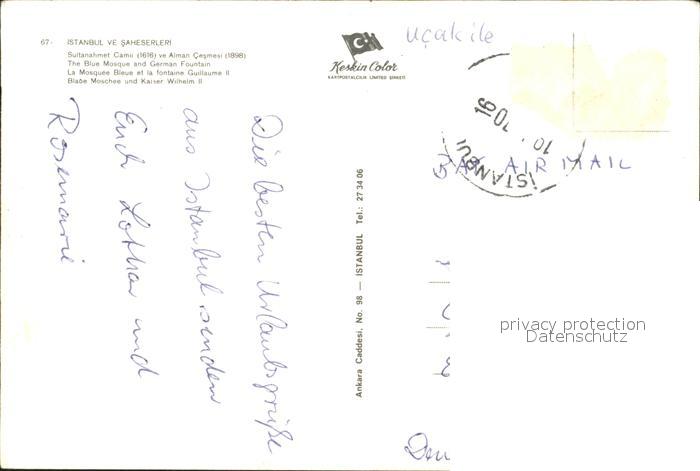 67- İSTANBUL VE ŞAHESERLERİ
Sultanahmet Camii (1616) ve Alman Çeşmesi (1898)
The Blue Mosque and German Fountain
La Mosquée Bleue et la fontaine Guillaume II
Blaŏe Moschee und Kaiser Wilhelm II
Keskin Color
KARTPOSTALCILIK LIMITED ŞİRKETİ
uçak ile
BAY AIR MAIL
İSTANBUL
Die besten Urlaubsgrüße
aus Istanbul senden
Euch Lothar und
Rosemarie
Ankara Caddesi, No. 98 — İSTANBUL Tel.: 27 34 06
privacy protection
Datenschutz